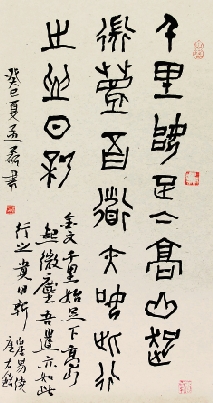 千里始足下高山起
微塵吾道亦如此行
之貴日新
金文千里始足下高山
起微塵吾道亦如此
行之貴日新
白居易
座右銘
癸巳夏
書